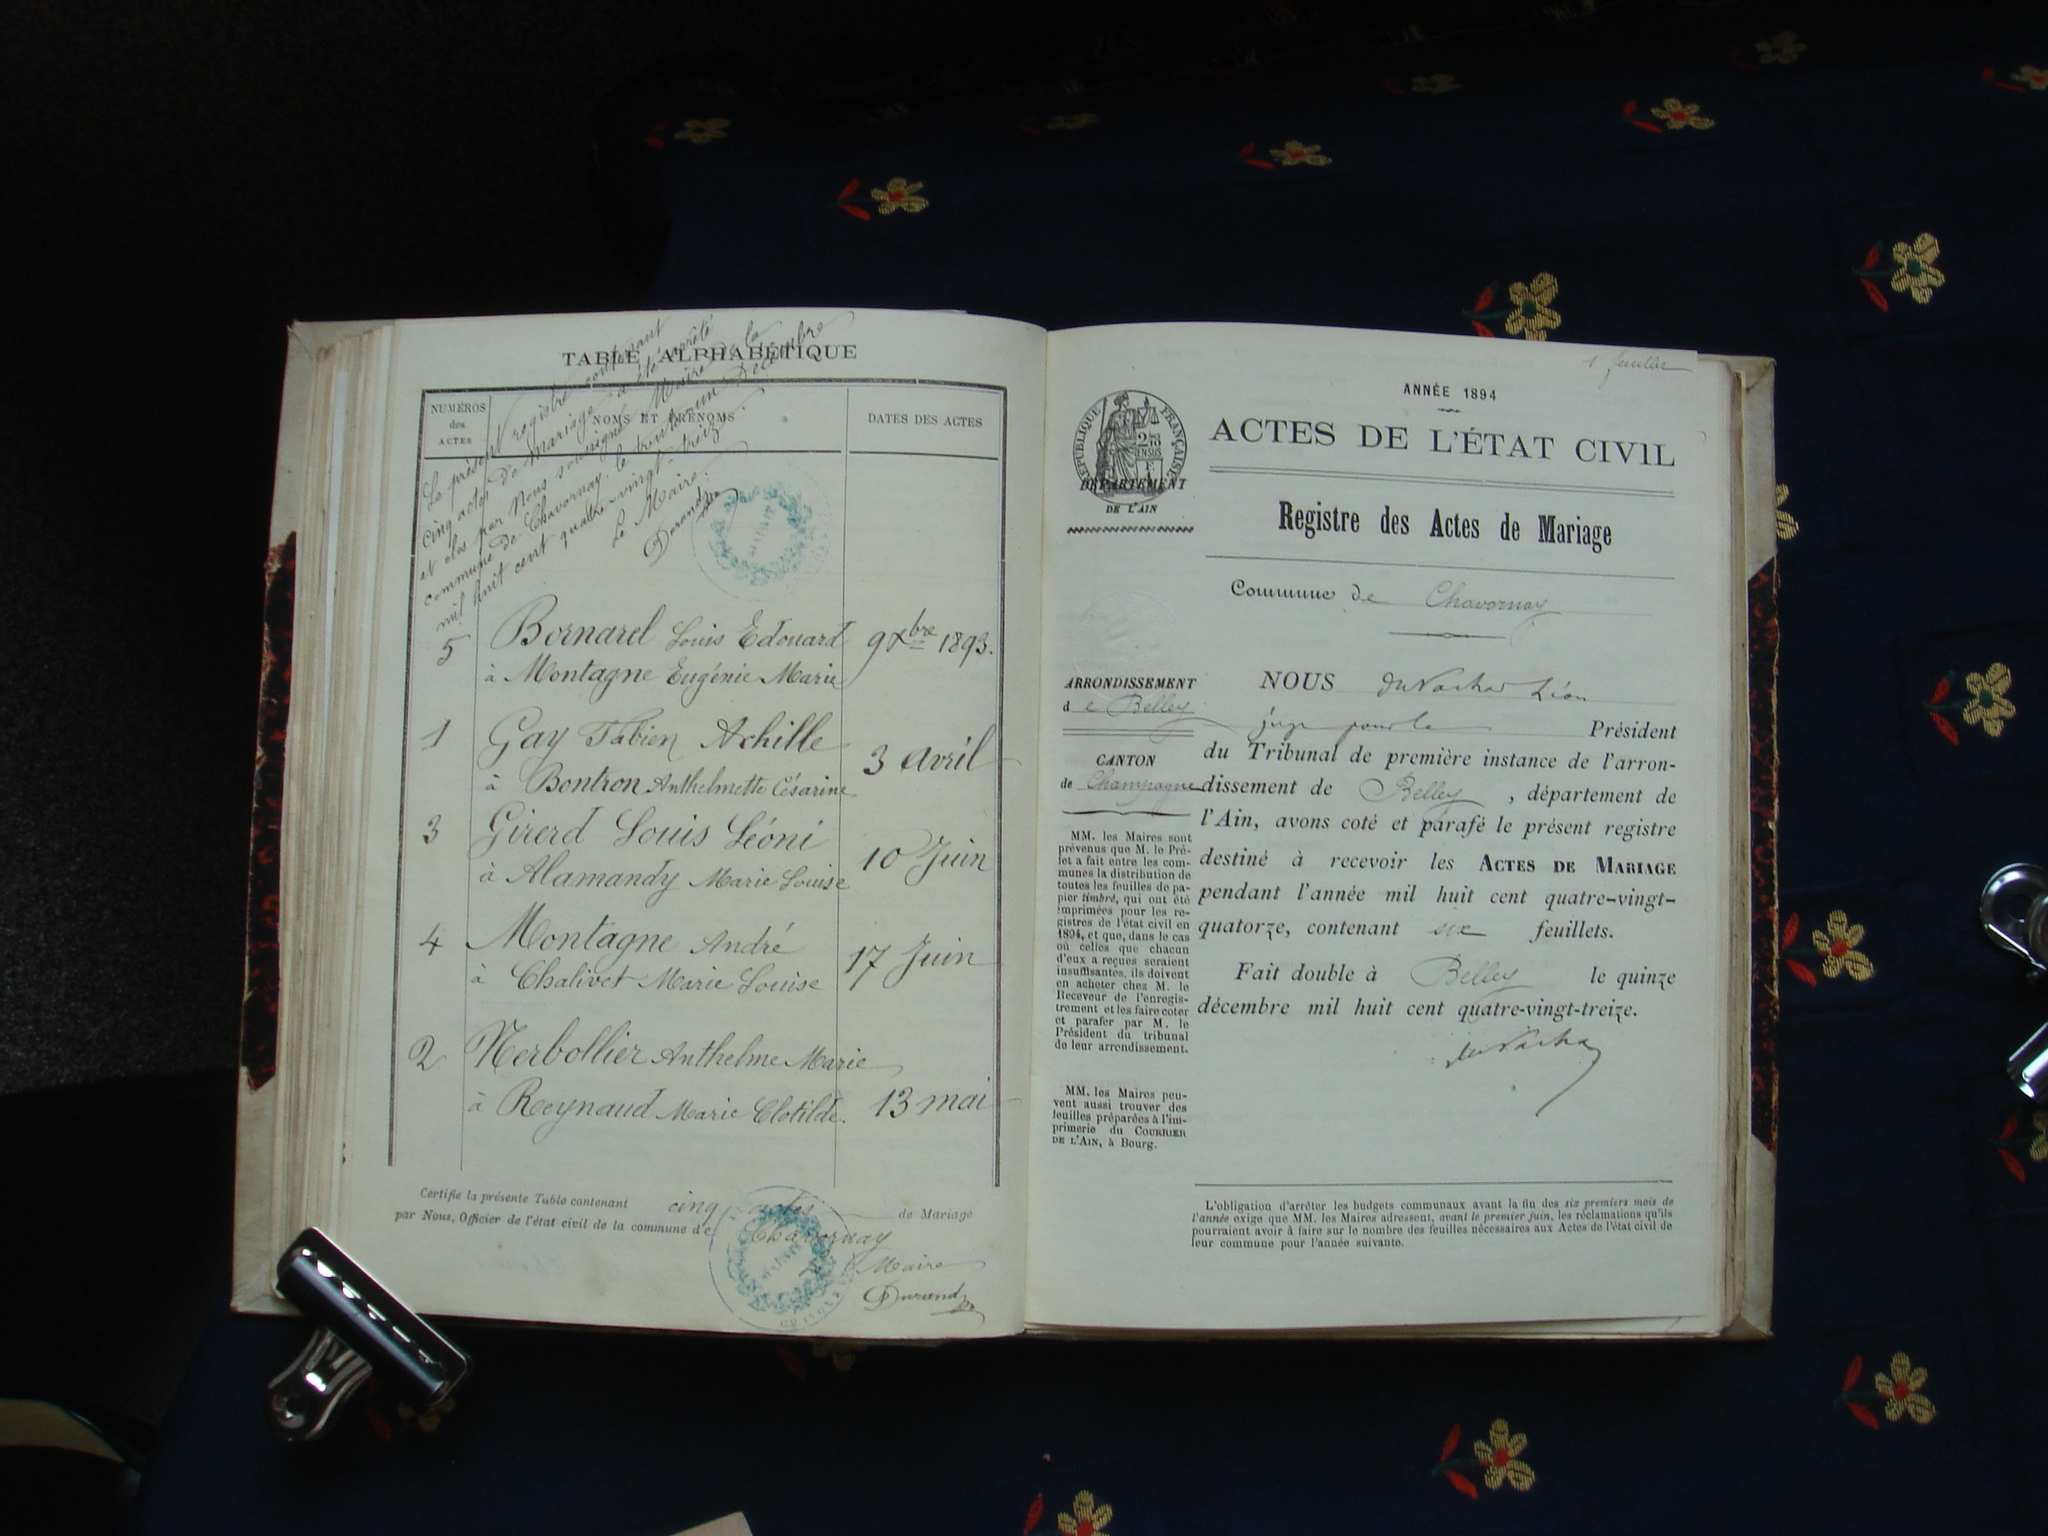 TABLE ALPHABÉTIQUE
NUMÉROS des ACTES
NOMS ET PRÉNOMS
DATES DES ACTES
Le présent registre contenant
cinq actes de mariage a été arrêté
et clos par Nous soussigné Maire de la
commune de Chavornay, le trente un Décembre
mil huit cent quatre-vingt-treize.
Le Maire.
Durand
5 Bornarel Louis Edouard 9 Xbre 1893.
à Montagne Eugénie Marie
1 Gay Fabien Achille 3 avril
à Bontron Anthelmette Césarine
3 Girerd Louis Léoni 10 Juin
à Alamandy Marie Louise
4 Montagne André 17 Juin
à Chalivet Marie Louise
2 Nerbollier Anthelme Marie
à Reynaud Marie Clotilde. 13 mai
Certifie la présente Table contenant cinq actes de Mariage
par Nous, Officier de l'état civil de la commune de Chavornay
Maire
Durand
ANNÉE 1894
RÉPUBLIQUE FRANÇAISE
DÉPARTEMENT
DE L'AIN
ACTES DE L'ÉTAT CIVIL
Registre des Actes de Mariage
Commune de Chavornay
ARRONDISSEMENT
de Belley
CANTON
de Champagne
MM. les Maires sont
prévenus que M. le Pré-
fet a fait entre les com-
munes la distribution de
toutes les feuilles de pa-
pier timbré, qui ont été
imprimées pour les re-
gistres de l'état civil en
1894, et que, dans le cas
où celles que chacun
d'eux a reçues seraient
insuffisantes, ils doivent
en acheter chez M. le
Receveur de l'enregis-
trement et les faire coter
et parafer par M. le
Président du tribunal
de leur arrondissement.
MM. les Maires peu-
vent aussi trouver des
feuilles préparées à l'im-
primerie du COURRIER
DE L'AIN, à Bourg.
NOUS Léon
juge pour le Président
du Tribunal de première instance de l'arron-
dissement de Belley, département de
l'Ain, avons coté et parafé le présent registre
destiné à recevoir les ACTES DE MARIAGE
pendant l'année mil huit cent quatre-vingt-
quatorze, contenant six feuillets.
Fait double à Belley le quinze
décembre mil huit cent quatre-vingt-treize.
L'obligation d'arrêter les budgets communaux avant la fin des six premiers mois de
l'année exige que MM. les Maires adressent, avant le premier juin, les réclamations qu'ils
pourraient avoir à faire sur le nombre des feuilles nécessaires aux Actes de l'état civil de
leur commune pour l'année suivante.